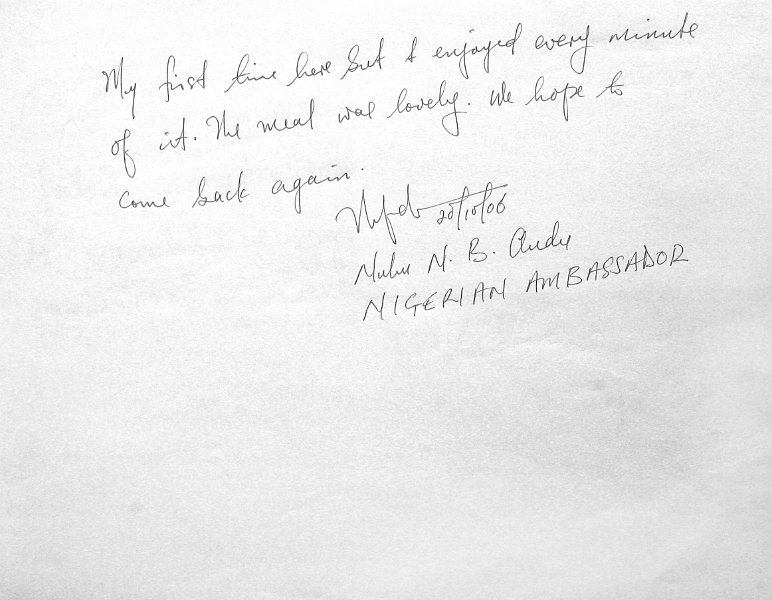 My first time here but I enjoyed every minute
of it. The meal was lovely. We hope to
come back again.
20/10/06
Nuhu N. B. Audu
NIGERIAN AMBASSADOR